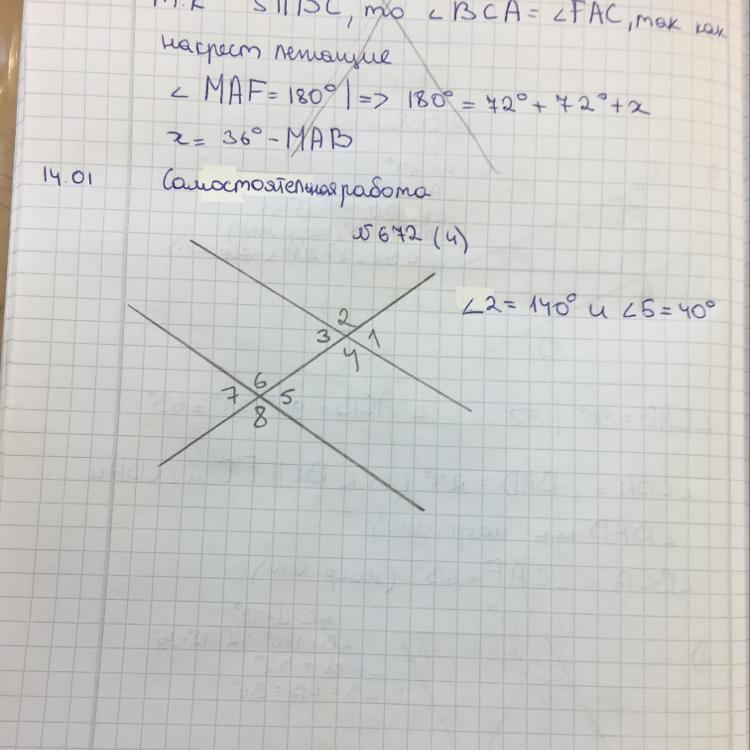 ∥ BC, то ∠BCA = ∠FAC, так как
накрест лежащие
∠ MAF = 180° | => 180° = 72° + 72° + x
x = 36° - MAB
14.01 Самостоятельная работа
№672 (4)
∠2 = 140° и ∠5 = 40°
2
3 1
4
6
7 5
8